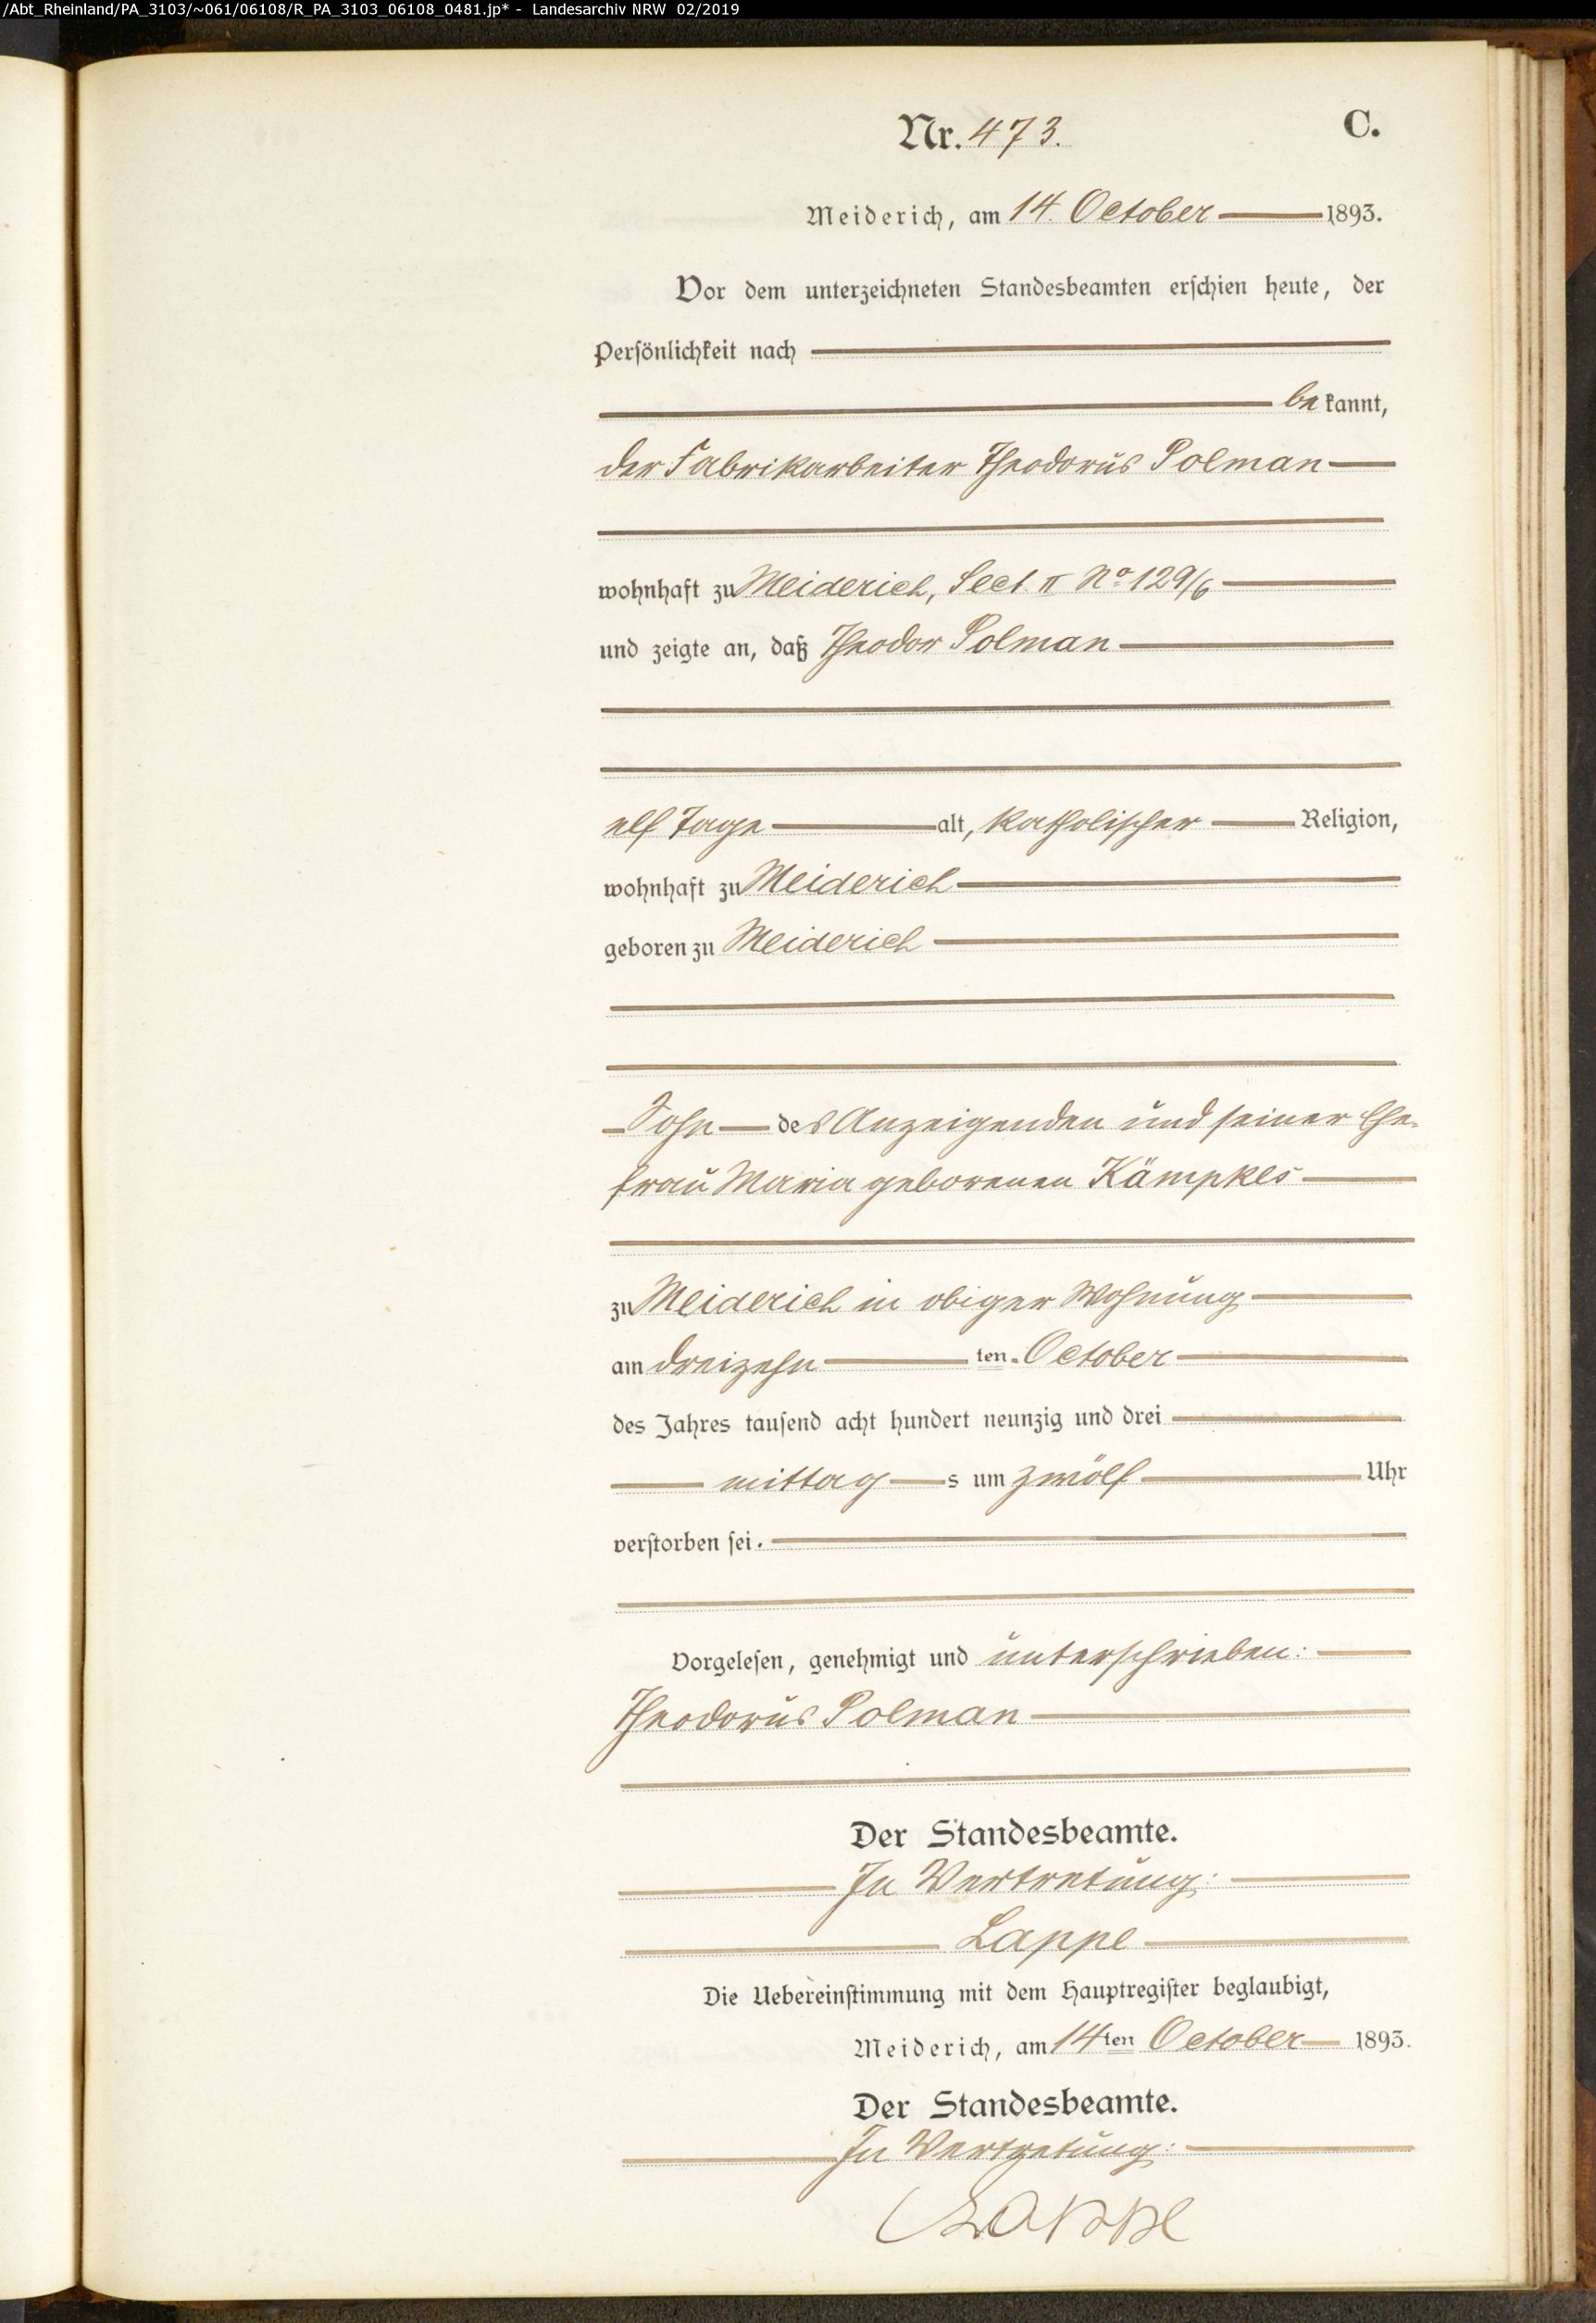 /Abt_Rheinland/PA_3103/~061/06108/R_PA_3103_06108_0481.jp* - Landesarchiv NRW 02/2019
Nr. 473.
C.
Meiderich, am 14. October 1893.
Vor dem unterzeichneten Standesbeamten erschien heute, der
Persönlichkeit nach
bekannt,
der Fabrikarbeiter Theodorus Polman
wohnhaft zu Meiderich, Sect. II No 129/6
und zeigte an, daß Theodor Polman
elf Tage alt, katholischer Religion,
wohnhaft zu Meiderich
geboren zu Meiderich
Sohn des Anzeigenden und seiner Ehe-
frau Maria geborenen Kämpkes
zu Meiderich in obiger Wohnung
am dreizehn ten October
des Jahres tausend acht hundert neunzig und drei
mittag s um zwölf Uhr
verstorben sei.
Vorgelesen, genehmigt und unterschrieben:
Theodorus Polman
Der Standesbeamte.
In Vertretung:
Lappe
Die Uebereinstimmung mit dem Hauptregister beglaubigt,
Meiderich, am 14ten October 1893.
Der Standesbeamte.
In Vertretung:
Lappe